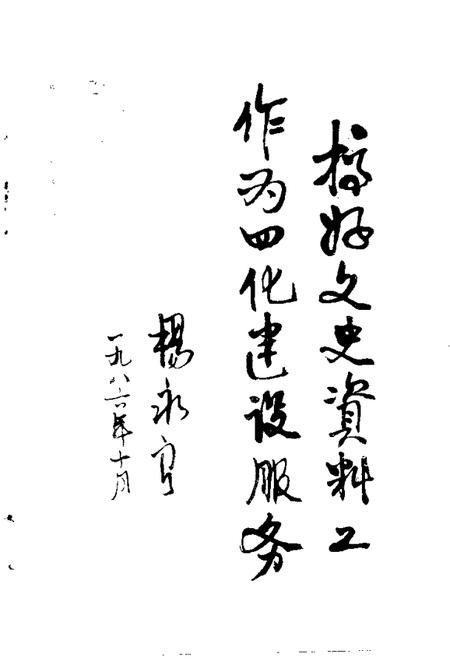 搞好文史資料工
作为四化建设服务
楊永亨
一九八六年十月